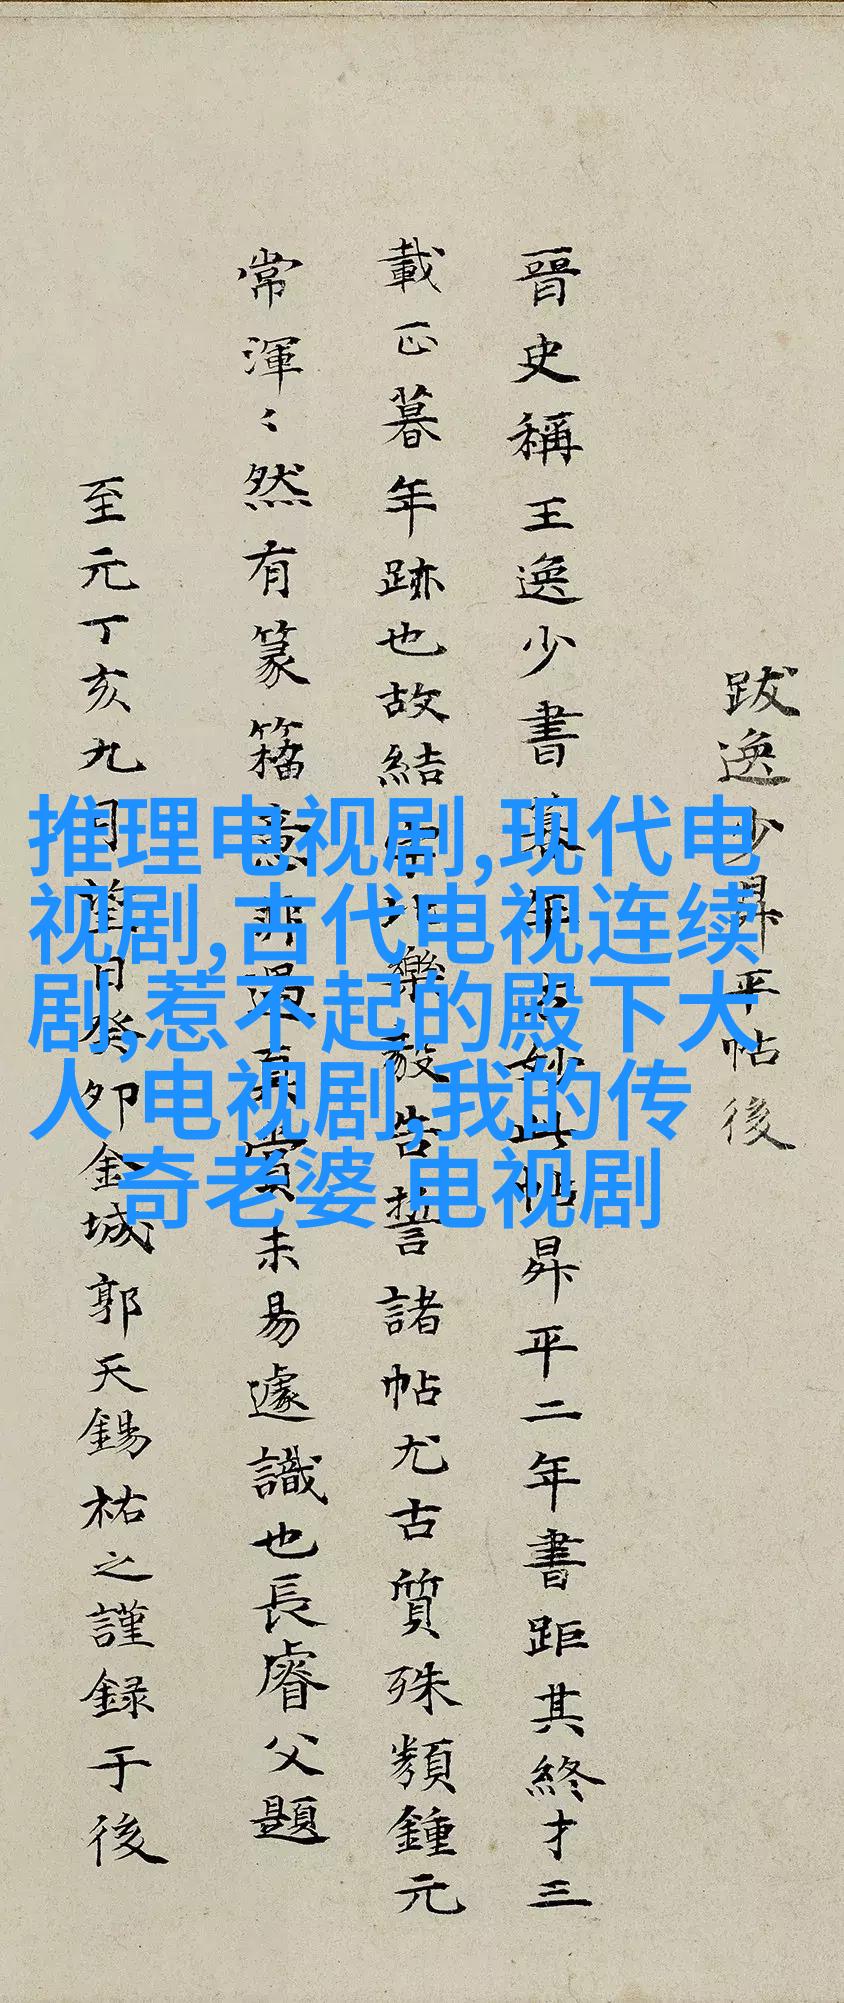 跋逸少昇平帖後
晉史稱王逸少書暮年方妙此帖昇平二年書距其終才三
載正暮年跡也故結字比樂毅告誓諸帖尤古質殊類鍾元
常渾〻然有篆籀意非遇真賞未易遽識也長睿父題
至元丁亥九月望日癸卯金城郭天錫祐之謹録于後
推理电视剧,现代电
视剧,古代电视连续
剧,惹不起的殿下大
人 电视剧,我的传
奇老婆 电视剧